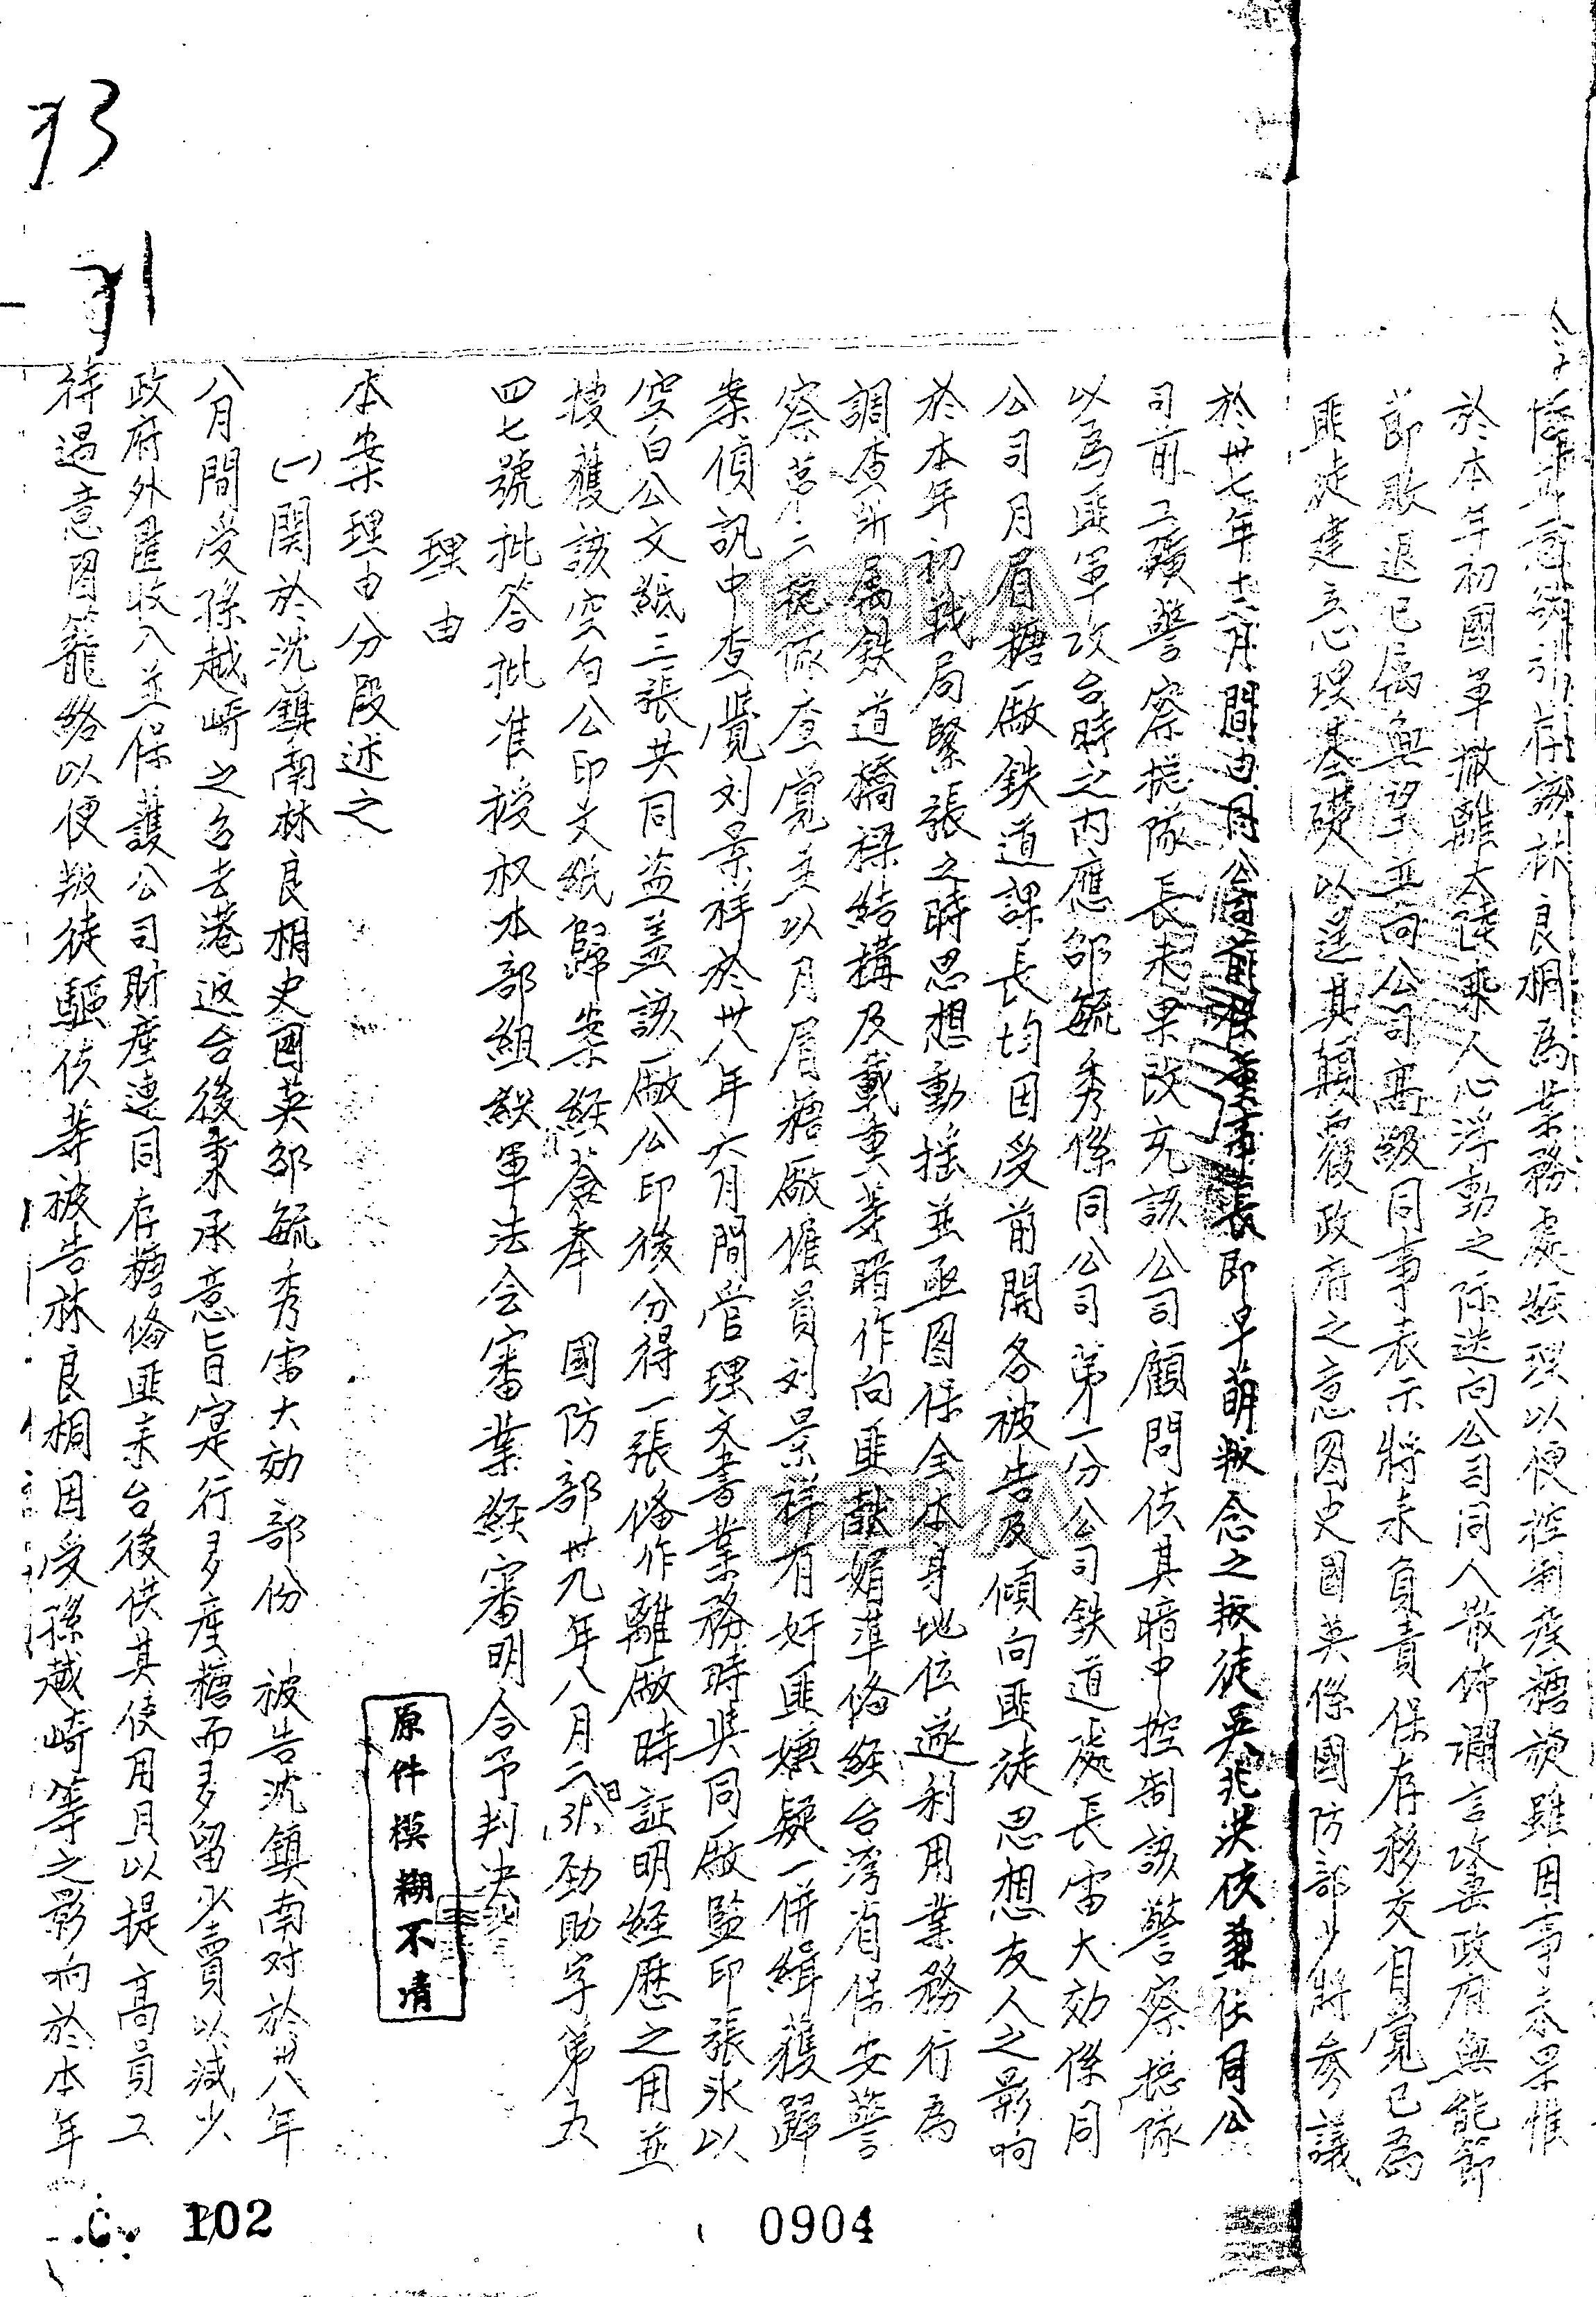 意網引薛誘林良桐為業務處經理以便控制產糖旋雖因事未果惟
於本年初國軍撤離大陸乘人心浮動之际迭向公司同人散佈讕言攻訐政府無能節
節敗退已属無望並向公司高級同事表示將来負責保存移交自覚已為
匪徒建立心理基礎以遂其顛覆政府之意图史国英係國防部少將参議
於卅七年十二月間由同公司前即早萌叛念之叛徒吳兆洪使兼任同公
司前工礦警察總隊長未果改充該公司顧問使其暗中控制該警察總隊
以為匪軍攻台時之内應邵毓秀係同公司第一分公司鉄道處長雷大効係同
公司月眉糖廠鉄道課長均因受前開各被告及傾向匪徒思想友人之影响
於本年初戰局緊張之時思想動摇並亟图保全本身地位遂利用業務行為
調查所属鉄道橋樑結構及載重等暗作向匪獻媚準俻經台湾省保安警
察第二總隊查覚並以月眉糖廠僱員刘景祥有奸匪嫌疑一併緝獲歸
案偵訊中查覺刘景祥於卅八年六月間管理文書業務時與同廠監印張永以
空白公文紙三張共同盗盖該廠公印後分得一張俻作離廠時証明経歷之用並
搜獲該空白公印文紙歸案經簽奉 國防部卅九年八月二日劲助字第五
四七號批答批准授权本部組織軍法会審業經審明合予判决
理由
本案理由分段述之
(一)関於沈鎮南林良桐史國英邵毓秀雷大効部份 被告沈鎮南对於卅八年
八月間受孫越崎之召去港返台後秉承意旨寔行多產糖而多留少賣以减少
政府外匯收入並保護公司財產連同存糖俻匪来台後供其使用且以提高員工
待遇意图籠絡以便叛徒驅使等被告林良桐因受孫越崎等之影响於本年
原件模糊不清
102
0904